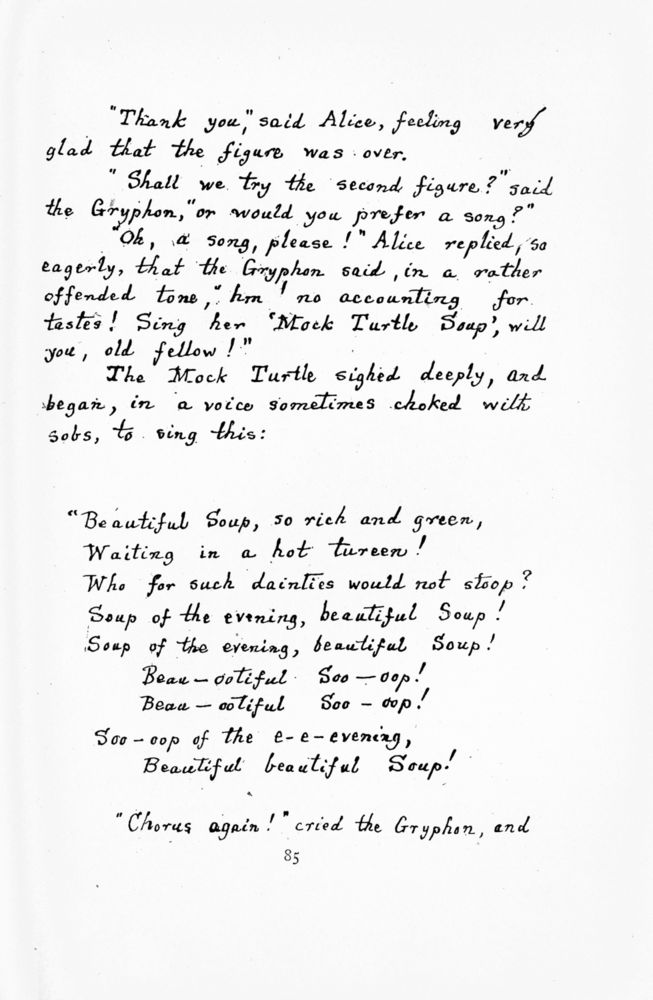 "Thank you," said Alice, feeling very
glad that the figure was over.
"Shall we try the second figure?" said
the Gryphon, "or would you prefer a song?"
"Oh, a song, please!" Alice replied, so
eagerly, that the Gryphon said, in a rather
offended tone, "hm! no accounting for
tastes! Sing her 'Mock Turtle Soup', will
you, old fellow!"
The Mock Turtle sighed deeply, and
began, in a voice sometimes choked with
sobs, to sing this:
"Beautiful Soup, so rich and green,
Waiting in a hot tureen!
Who for such dainties would not stoop?
Soup of the evening, beautiful Soup!
Soup of the evening, beautiful Soup!
Beau — ootiful Soo — oop!
Beau — ootiful Soo — oop!
Soo — oop of the e-e-evening,
Beautiful beautiful Soup!
"Chorus again!" cried the Gryphon, and
85